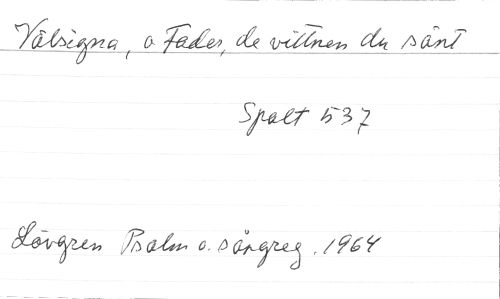 Välsigna, o Fader, de vittnen du sänt
Spalt 537
Lövgren Psalm o. sångreg. 1964